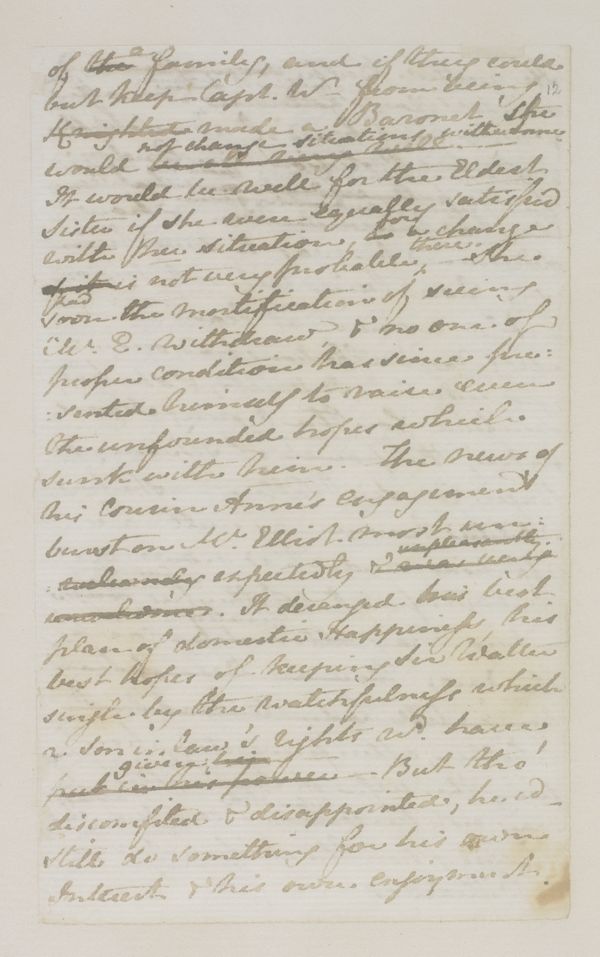 of the a family, and if they could
but keep Capt. W. from being 12
Knighted made a Baronet, She
would not change situations with some
It would be well for the Eldest
Sister if she were equally satisfied
with her situation, for a change
is not very probable there. She
had soon the mortification of seeing
Mr. E. withdraw, & no one of
proper condition has since pre:
:sented himself to raise even
the unfounded hopes which
sunk with him. The news of
his Cousin Anne's engagement
burst on Mr. Elliot most un:
expectedly & unpleasantly was very
. It deranged his best
plan of domestic Happiness, his
best hopes of keeping Sir Walter
single by the watchfulness which
a son in law's rights wd. have
given
put in his power. But tho'
discomfited & disappointed, he cd.
still do something for his own
Interest & his own enjoyment.